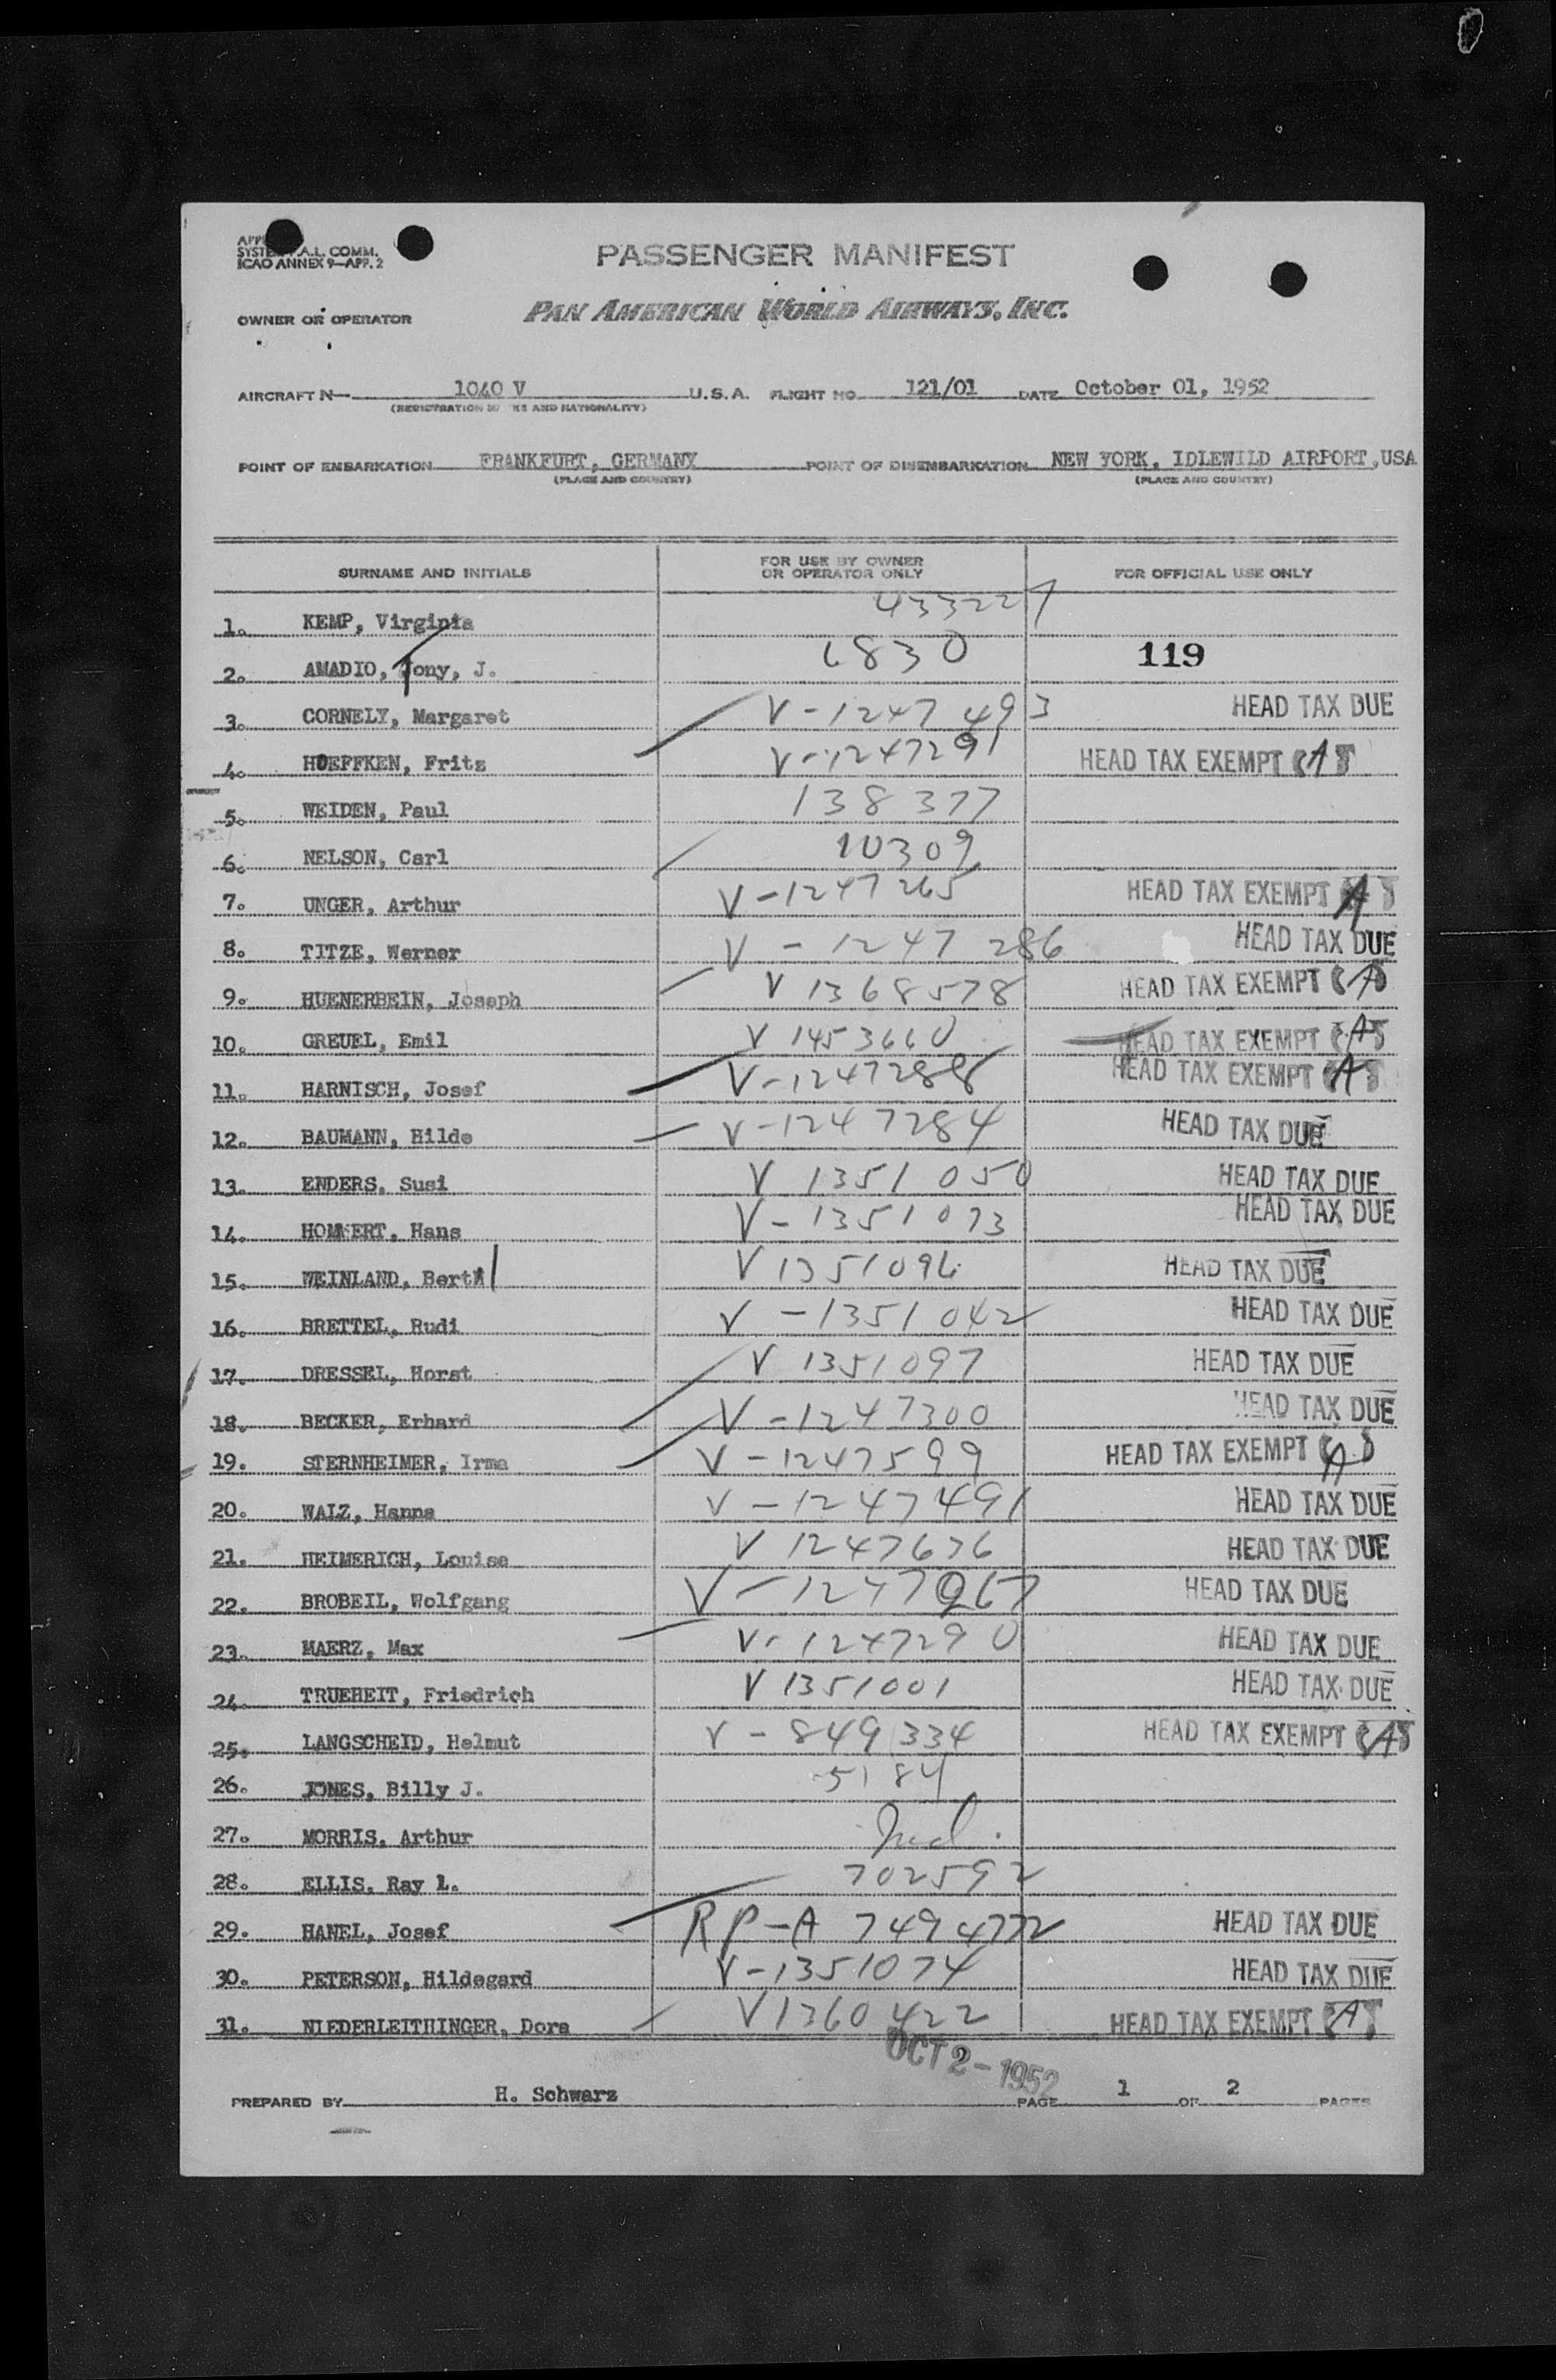 PASSENGER MANIFEST
SYSTEM F.A.L. COMM.
ICAO ANNEX 9—APP. 2
OWNER OR OPERATOR PAN AMERICAN WORLD AIRWAYS, INC.
AIRCRAFT N— 1040 V U.S.A. FLIGHT NO. 121/01 DATE October 01, 1952
(REGISTRATION AND NATIONALITY)
POINT OF EMBARKATION FRANKFURT, GERMANY POINT OF DISEMBARKATION NEW YORK, IDLEWILD AIRPORT, USA
(PLACE AND COUNTRY) (PLACE AND COUNTRY)
SURNAME AND INITIALS FOR USE BY OWNER OR OPERATOR ONLY FOR OFFICIAL USE ONLY
1. KEMP, Virginia 433227
2. AMADIO, Tony, J. 6830 119
3. CORNELY, Margaret V-1247493 HEAD TAX DUE
4. HOEFFKEN, Fritz V-1247291 HEAD TAX EXEMPT
5. WEIDEN, Paul 138377
6. NELSON, Carl 10309
7. UNGER, Arthur V-1247265 HEAD TAX EXEMPT
8. TITZE, Werner V-1247286 HEAD TAX DUE
9. HUENERBEIN, Joseph V 1368578 HEAD TAX EXEMPT
10. GREUEL, Emil V 1453660 HEAD TAX EXEMPT
11. HARNISCH, Josef V-1247288 HEAD TAX EXEMPT
12. BAUMANN, Hilde V-1247284 HEAD TAX DUE
13. ENDERS, Susi V 1351050 HEAD TAX DUE
14. HOMMERT, Hans V-1351073 HEAD TAX DUE
15. WEINLAND, Berta V 1351096 HEAD TAX DUE
16. BRETTEL, Rudi V-1351042 HEAD TAX DUE
17. DRESSEL, Horst V 1351097 HEAD TAX DUE
18. BECKER, Erhard V-1247300 HEAD TAX DUE
19. STERNHEIMER, Irma V-1247599 HEAD TAX EXEMPT
20. WALZ, Hanna V-1247491 HEAD TAX DUE
21. HEIMERICH, Louise V 1247676 HEAD TAX DUE
22. BROBEIL, Wolfgang V-1247267 HEAD TAX DUE
23. MAERZ, Max V-1247290 HEAD TAX DUE
24. TRUEHEIT, Friedrich V 1351001 HEAD TAX DUE
25. LANGSCHEID, Helmut V-849334 HEAD TAX EXEMPT
26. JONES, Billy J. 5184
27. MORRIS, Arthur
28. ELLIS, Ray L. 702592
29. HANEL, Josef RP-A 7494772 HEAD TAX DUE
30. PETERSON, Hildegard V-1351074 HEAD TAX DUE
31. NIEDERLEITHINGER, Dora V 1360422 HEAD TAX EXEMPT
OCT 2-1952
PREPARED BY H. Schwarz PAGE 1 OF 2 PAGES